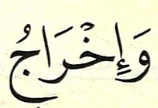 وَإِخْرَاجُ